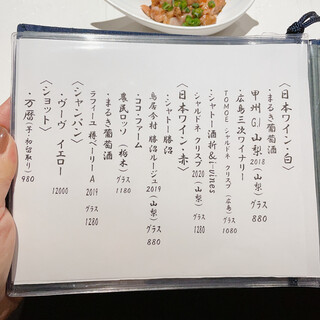 〈日本ワイン・白〉
・まるき葡萄酒
甲州 G.I 山梨 2018（山梨）
グラス 880
・広島三次ワイナリー
TOMOE シャルドネ クリスプ（広島）
グラス 1080
・シャトー酒折 & vines
シャルドネ クリスプ 2020（山梨）
グラス 880
〈日本ワイン・赤〉
・シャトー勝沼
鳥居今村 勝沼ルージュ 2019（山梨）
グラス 880
・ココ・ファーム
農民ロッソ（栃木）
グラス 1180
・まるき葡萄酒
ラフィーユ 樽ベーリーA 2019
グラス 1280
〈シャンパン〉
・ヴーヴ イエロー
12000
〈ショット〉
・万暦（芋・初留取り）
980